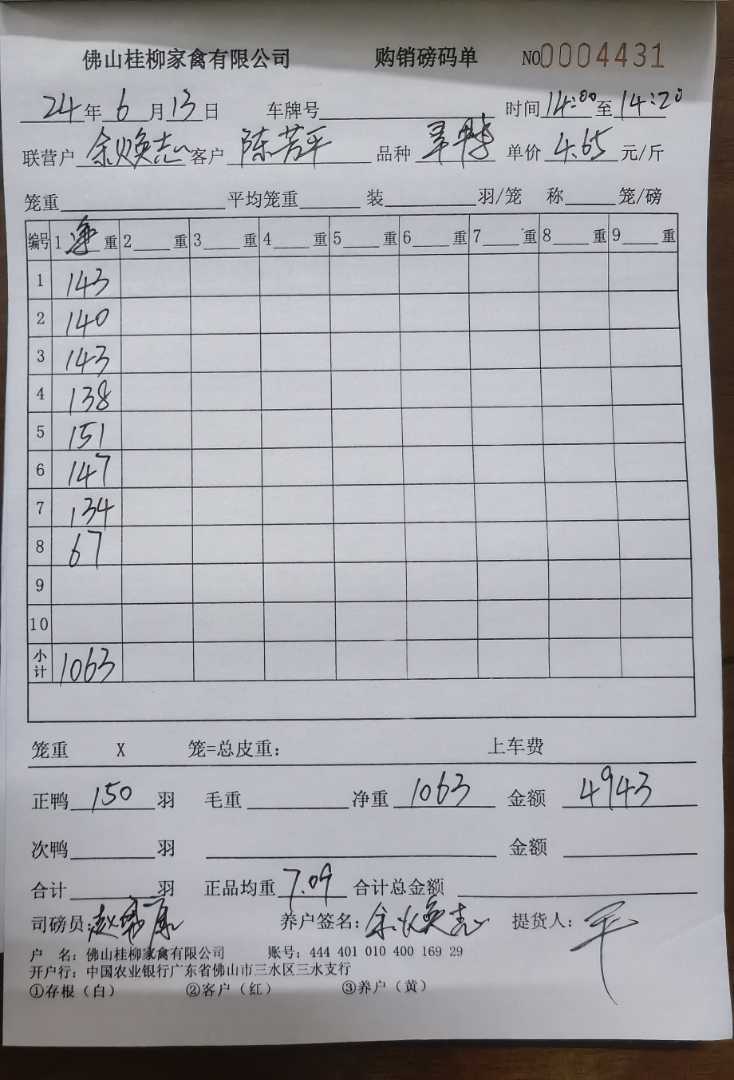 佛山桂柳家禽有限公司 购销磅码单 NO0004431
24年6月13日 车牌号 时间14:00至14:20
联营户 余焕志 客户 陈芳平 品种 单价 4.65 元/斤
笼重 平均笼重 装 羽/笼 称 笼/磅
编号 1 净 重 2 重 3 重 4 重 5 重 6 重 7 重 8 重 9 重
1 143
2 140
3 143
4 138
5 151
6 147
7 134
8 67
9
10
小计 1063
笼重 X 笼=总皮重: 上车费
正鸭 150 羽 毛重 净重 1063 金额 4943
次鸭 羽 金额
合计 羽 正品均重 7.09 合计总金额
司磅员: 养户签名: 余焕志 提货人: 平
户 名: 佛山桂柳家禽有限公司 账号: 444 401 010 400 169 29
开户行: 中国农业银行广东省佛山市三水区三水支行
①存根(白) ②客户(红) ③养户(黄)